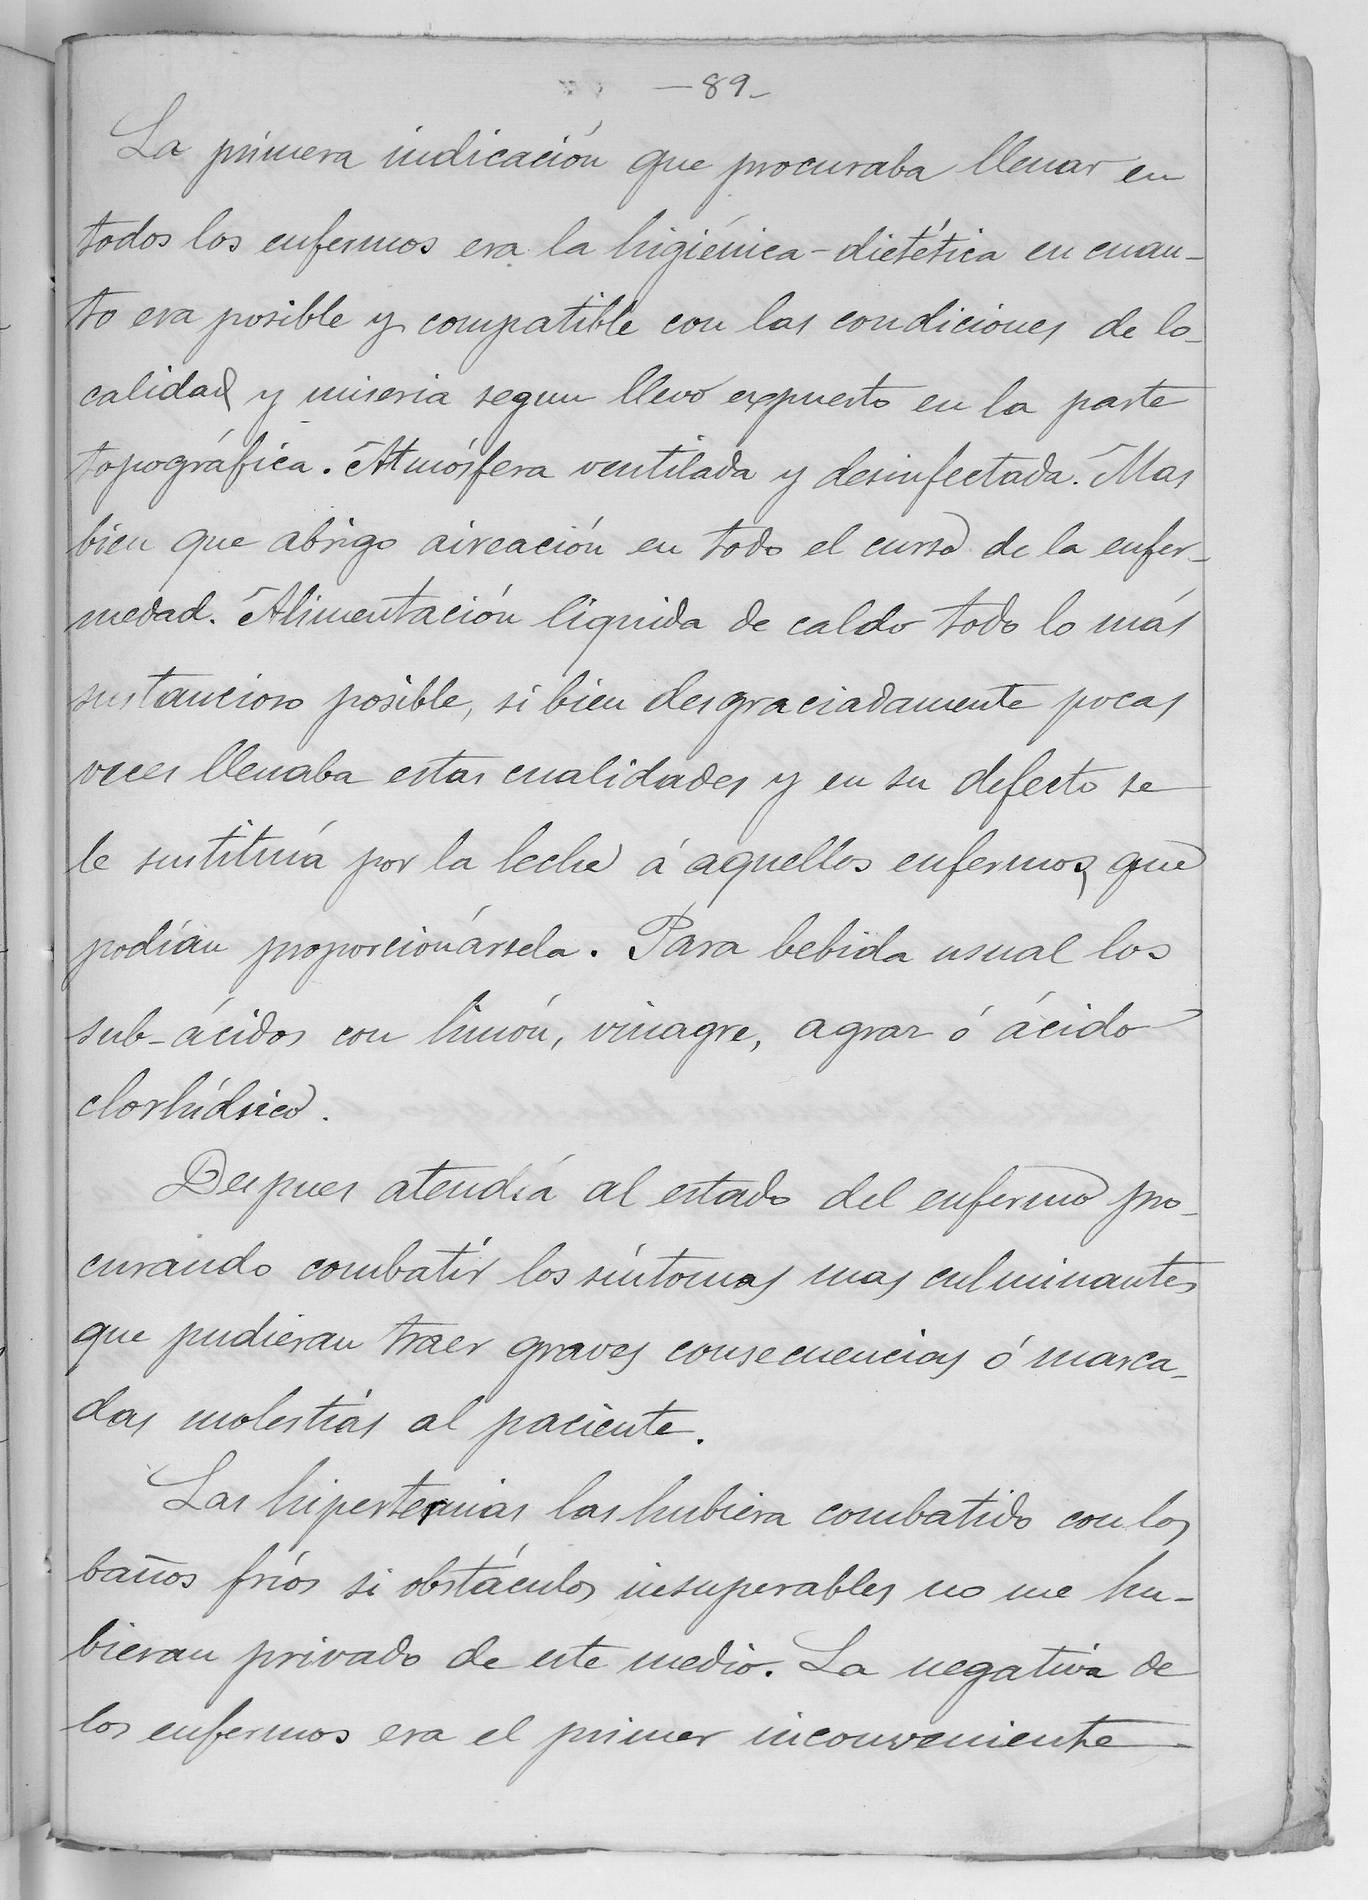 —89—
La primera indicación que procuraba llenar en
todos los enfermos era la higiénica-dietética en cuan-
to era posible y compatible con las condiciones de lo-
calidad y miseria segun llevo expuesto en la parte
topográfica. Atmósfera ventilada y desinfectada. Mas
bien que abrigo aireación en todo el curso de la enfer-
medad. Alimentación líquida de caldo todo lo más
sustancioso posible, si bien desgraciadamente pocas
veces llenaba estas cualidades y en su defecto se
le sustituía por la leche á aquellos enfermos que
podían proporcionársela. Para bebida usual los
sub-ácidos con limón, vinagre, agraz ó ácido
clorhídrico.
Despues atendía al estado del enfermo pro-
curando combatir los síntomas mas culminantes
que pudieran traer graves consecuencias ó marca-
das molestias al paciente.
Las hipertermias las hubiera combatido con los
baños fríos si obstáculos insuperables no me hu-
bieran privado de este medio. La negativa de
los enfermos era el primer inconveniente